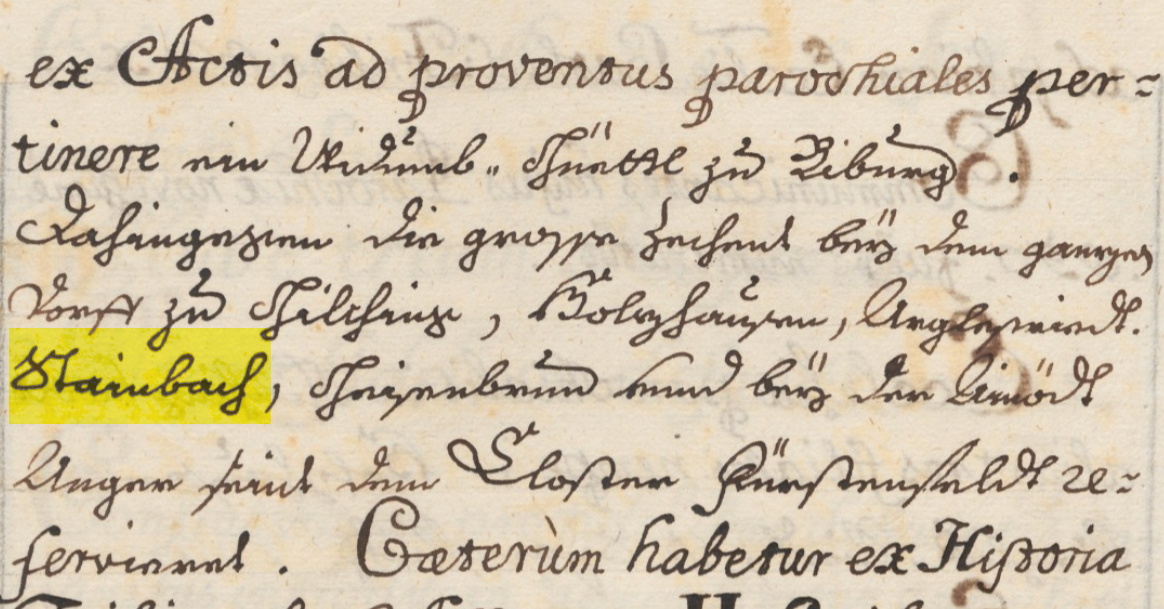 ex Actis ad proventus parochiales per-
tinere ein Widumb „ zu Biburg .
Dahingegen die grosse Zechent bey dem ganzen
Dorff zu Gilching, Holzhausen, Arglsriedt.
Stainbach, bey der Ainödt
Anger seint dem Closter Fürstenfeldt re-
servieret . Cæterùm habetur ex Historia